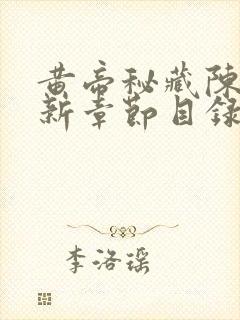 黄帝秘藏陳
新章節目錄
李洛瑶